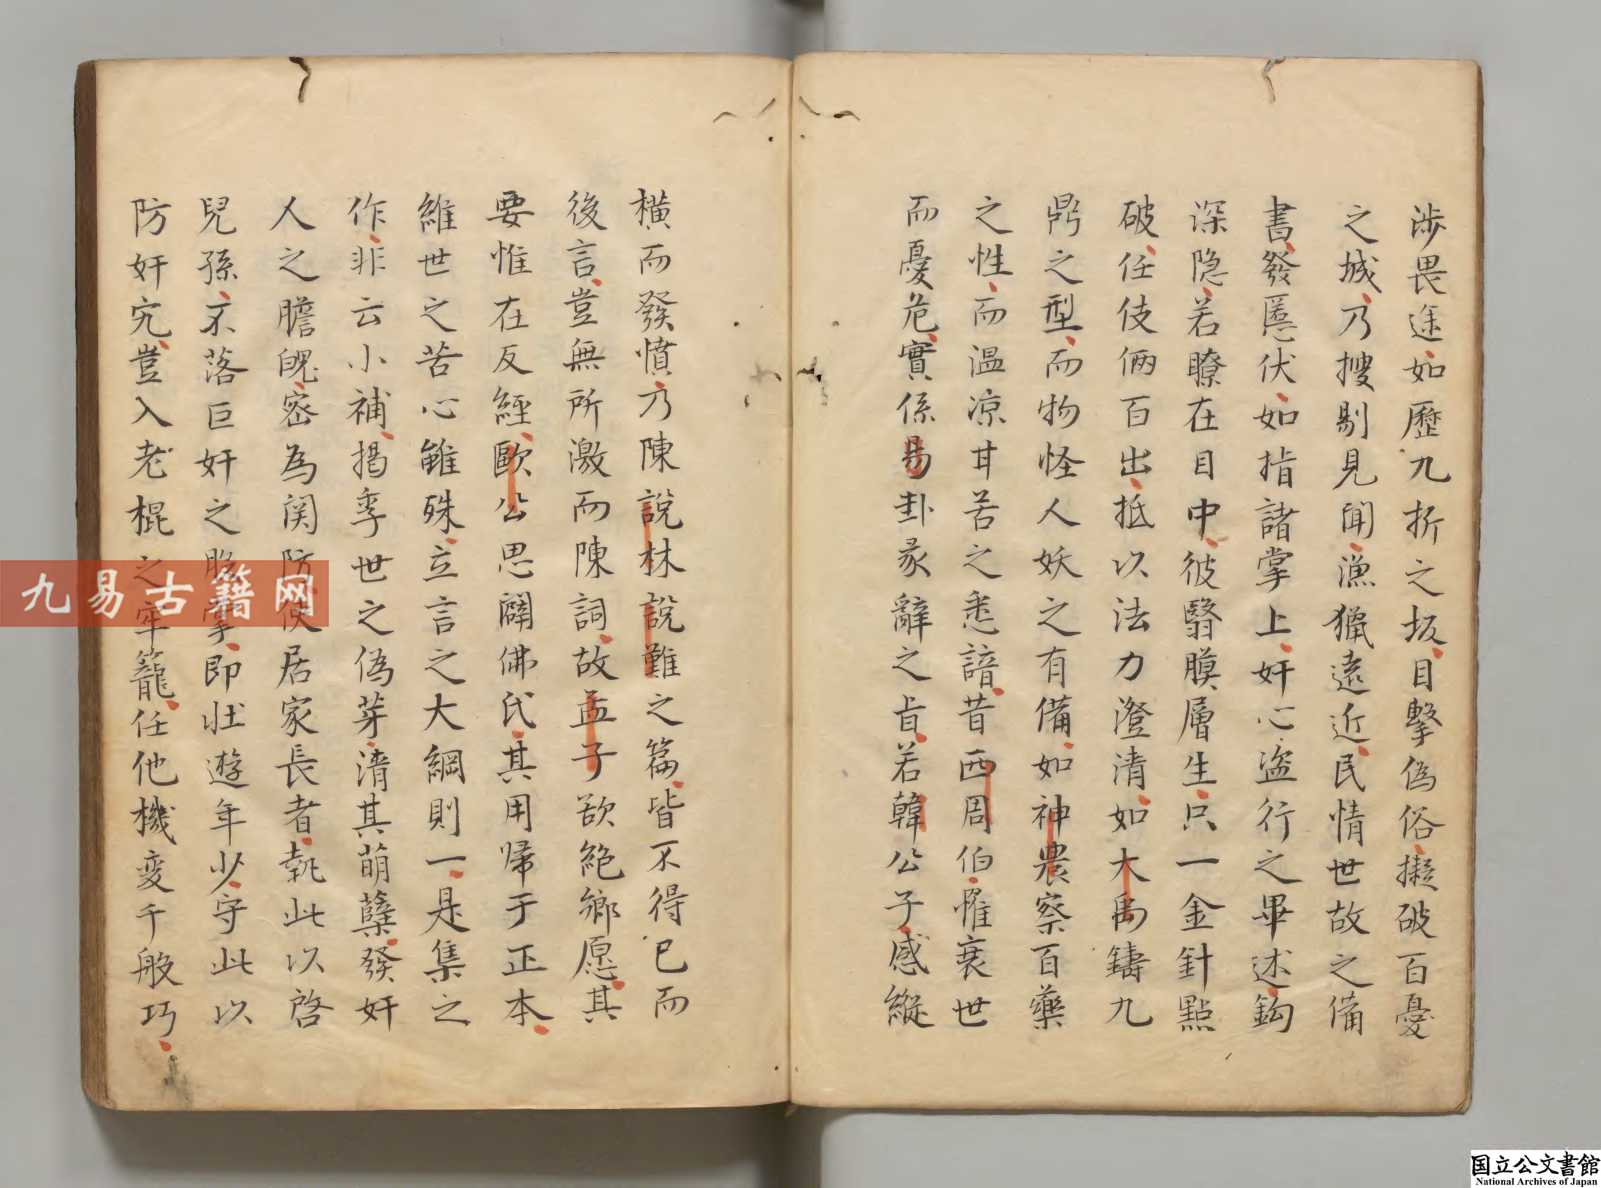 涉畏途如歷九折之坂目擊偽俗擬破百憂
之城乃搜剔見聞漁獵遠近民情世故之備
書發慝伏如指諸掌上奸心盗行之畢述鈎
深隠若瞭在目中彼翳膜層生只一金針點
破任伎倆百出抵以法力澄清如大禹鑄九
鼎之型而物怪人妖之有備如神農察百藥
之性而温凉甘苦之悉諳昔西周伯惟衰世
而憂危實係易卦彖辭之旨若韓公子感縱
橫而發憤乃陳說林說難之篇皆不得已而
後言豈無所激而陳詞故孟子欲絶鄉愿其
要惟在反經歐公思闢佛氏其用帰于正本
維世之苦心雖殊立言之大綱則一是集之
作非云小補揭季世之偽芽清其萌蘖發奸
人之膽魄密為関防使居家長者執此以啓
兒孫不落巨奸之股掌即壯遊年少守此以
防奸宄豈入老棍之牢籠任他機变千般巧
九易古籍网
国立公文書館
National Archives of Japan